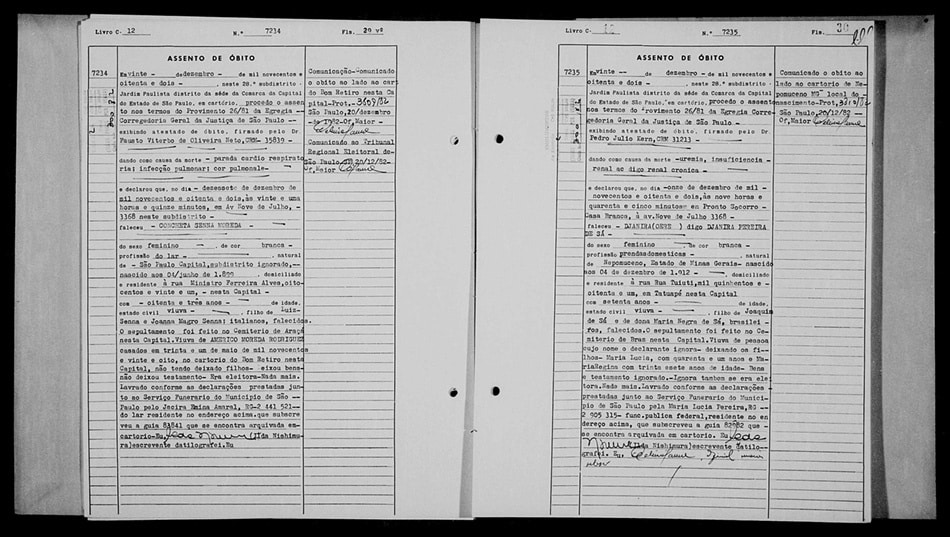 Livro C- 12 N.º 7234 Fls. 29 vº
ASSENTO DE ÓBITO
7234
Em vinte - de dezembro - de mil novecentos e
oitenta e dois - , neste 28.º subdistrito -
Jardim Paulista distrito da séde da Comarca da Capital
do Estado de São Paulo, em cartório, procedo o assen
to nos termos do Provimento 26/81 da Egregia --
Corregedoria Geral da Justiça de São Paulo --
exibindo atestado de óbito, firmado pelo Dr.
Fausto Viterbo de Oliveira Neto, CRM- 15839 -
dando como causa da morte - parada cardio respirato
ria; infecção pulmonar; cor pulmonale-
e declarou que, no dia - dezessete de dezembro de
mil novecentos e oitenta e dois, às vinte e uma
horas e quinze minutos, em Av Nove de Julho, -
3368 neste subdistrito -
faleceu - CONCHETA SENNA MOREDA -
do sexo feminino - , de cor branca -
profissão do lar - , natural
de - São Paulo Capital, subdistrito ignorado,--
nascido aos 04/junho de 1.899 , domiciliado
e residente à rua Ministro Ferreira Alves, oito-
centos e vinte e um, - nesta Capital -
com - oitenta e três anos - de idade,
estado civil viuva - , filho de Luiz-
Senna e Joanna Magro Senna; italianos, falecidos.
O sepultamento foi feito no Cemiterio de Araçá
nesta Capital. Viuva de AMERICO MOREDA RODRIGUEZ
casados em trinta e um de maio de mil novecentos
e vinte e oito, no cartorio do Bom Retiro nesta
Capital, não tendo deixado filhos- eixou bens-
não deixou testamento- Era eleitora-Nada mais.
Lavrado conforme as declarações prestadas jun-
to ao Serviço Funerario do Municipio de São --
Paulo pela Jacira Emina Amaral, RG-2 441 521--
do lar residente no endereço acima, que subscre
veu a guia 83841 que se encontra arquivada em-
cartorio-Eu, (Ilda Nishimu-
ra) escrevente datilografei. Eu
Comunicação-Comunicado
o obito ao lado ao cart
do Bom Retiro nesta Ca
pital-Prot.- 3609/82
São Paulo, 20/dezembro
- 1982-Of. Maior -
Comunicado ao Tribunal
Regional Eleitoral de-
São Paulo 20/12/82-
Of. Maior
Livro C- N.º 7235 Fls. 30
ASSENTO DE ÓBITO
7235
Em vinte -- de dezembro - de mil novecentos e
oitenta e dois - , neste 28.º subdistrito -
Jardim Paulista distrito da séde da Comarca da Capital
do Estado de São Paulo, em cartório, procedo o assento
nos termos do Provimento 26/81 da Egregia Corre-
gedoria Geral da Justiça de São Paulo -
exibindo atestado de óbito, firmado pelo Dr.
Pedro Julio Kern, CRM 31213 -
dando como causa da morte -uremia, insuficiencia -
renal ac digo renal cronica -
e declarou que, no dia -onze de dezembro de mil -
novecentos e oitenta e dois, às nove horas e
quarenta e cinco minutos= en Pronto Socorro -
Casa Branca, à av. Nove de Julho 3368 -
faleceu - DJANIRA(GERE ) digo DJANIRA PEREIRA
DE SÁ -
do sexo feminino de cor branca -
profissão prendasdomesticas - , natural
de Nepomuceno, Estado de Minas Gerais- nascido
aos 04 de dezembro de 1.912 - , domiciliado
e residente à rua Rua Tuiuti, mil quinhentos e -
oitenta e um, em Tatuapé nesta Capital
com setenta anos - de idade,
estado civil viuva - , filho de Joaquim
de Sá e de dona Maria Negra de Sá, brasilei -
ros, falecidos. O sepultamento foi feito no Ce-
miterio de Bras nesta Capital. Viuva de pessoa
cujo nome o declarante ignora- deixando os fi--
lhos- Maria Lucia, com quarenta e um anos e Ma-
riaRegina com trinta esete anos de idade- Bens
e testamento ignorado.-Ignora tambem se era ele
tora. Nada mais. Lavrado conforme as declarações
prestadas junto ao Serviço Funerario do Munici-
pio de São Paulo pela Maria Lucia Pereira, RG --
2 905 315- func. publica federal, residente no en
dereço acima, que subscreveu a guia 82982 que -
se encontra arquivada em cartorio. Eu
(Ilda Nishimura) escrevente datilo-
grafei. Eu,
Comunicado o obito ao
lado ao cartorio de Ne-
pomuceno MG local do-
nascimento-Prot, 3610/82
São Paulo, 20/12/82 -
Of. Maior